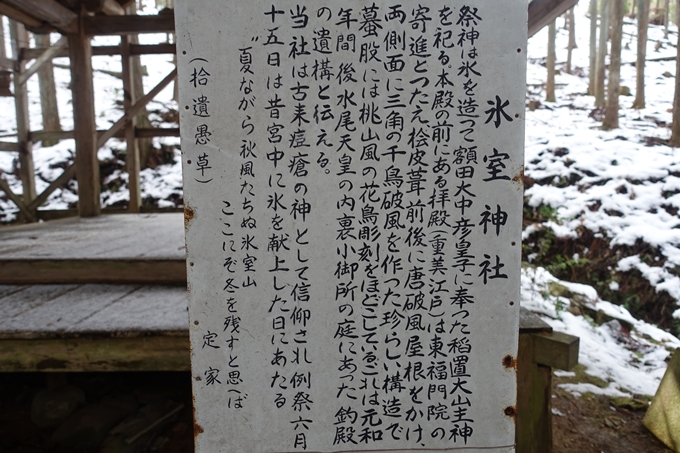 氷室神社
祭神は氷を造って額田大中彦皇子に奉った稲置大山主神
を祀る。本殿の前にある拝殿(重美、江戸)は東福門院の
寄進とつたえ桧皮茸前後に唐破風屋根をかけ、
両側面に三角の千鳥破風を作った珍らしい構造で
蟇股には桃山風の花鳥彫刻をほどこしているこれは元和
年間後水尾天皇の内裏小御所の庭にあった釣殿
の遺構と伝える。
当社は古来痘瘡の神として信仰され例祭六月
十五日は昔宮中に氷を献上した日にあたる
〝夏ながら秋風たちぬ氷室山
ここにぞ冬を残すと思へば
定家
(拾遺愚草)